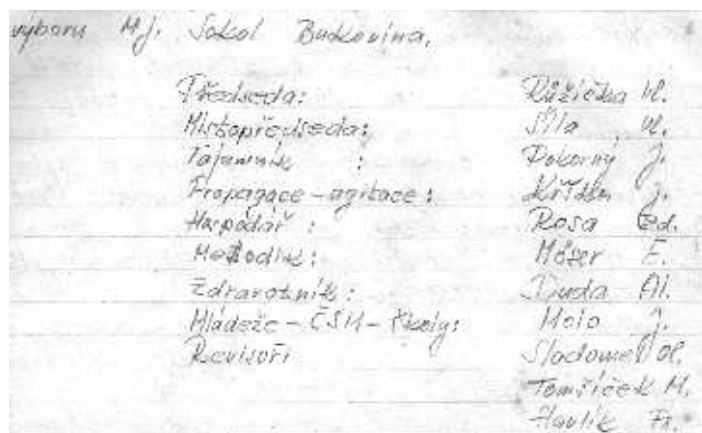 výboru M.j. Sokol Bukovina.
Předseda: Růžička Vl.
Místopředseda: Síla Vl.
Tajemník : Pokorný J.
Propagace - agitace : J.
Hospodář : Rosa Ed.
Metodik : Möser E.
Zdravotník : Duda Al.
Mládeže - ČSM - J.
Revisoři Ol.
Tomšíček M.
Havlík Fr.